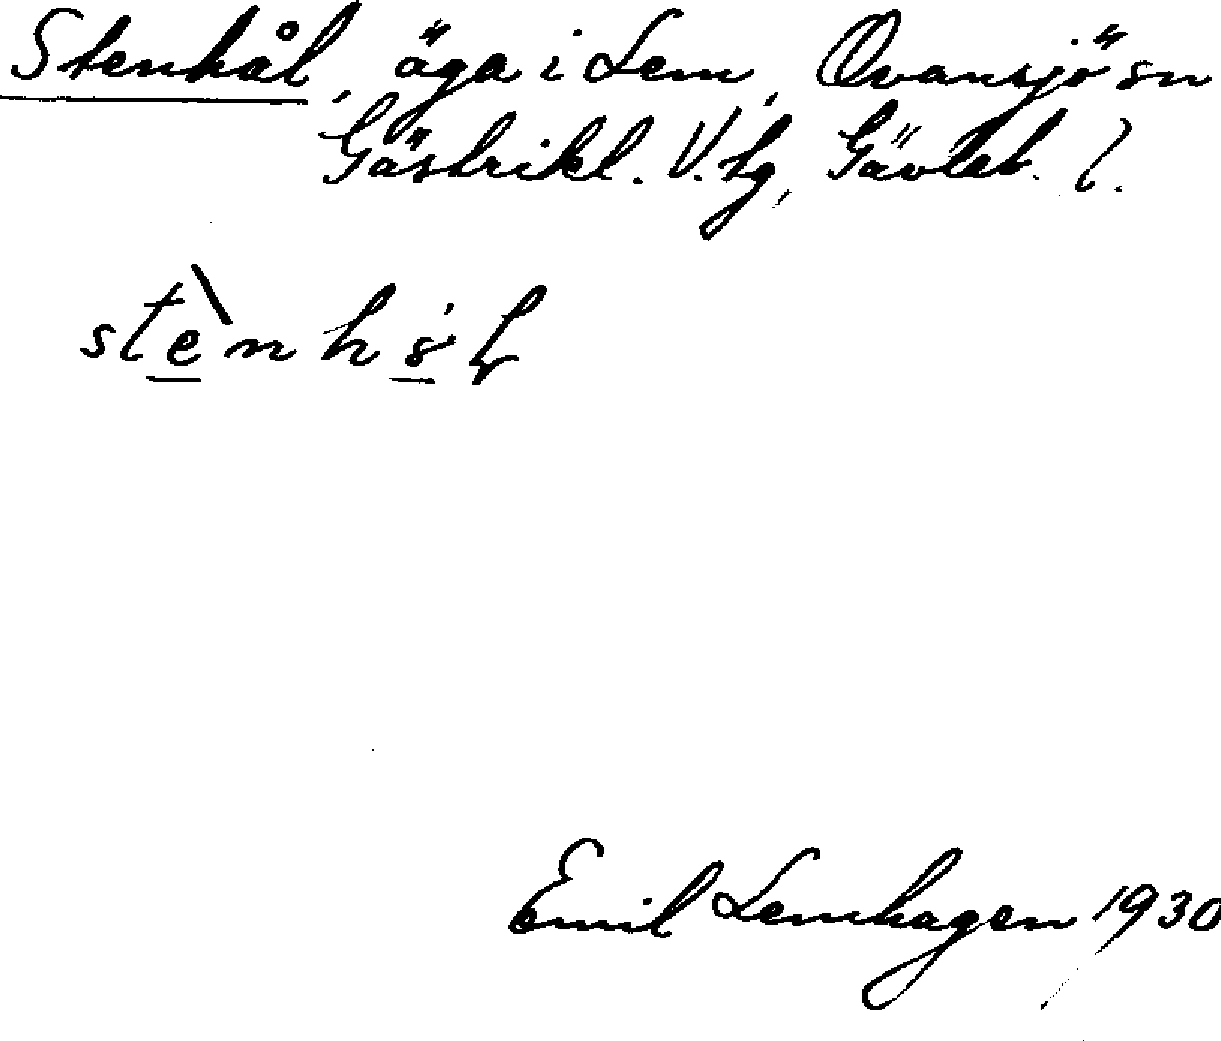 Stenhål, äga i Lem, Ovansjö sn
Gästrikl. V. tg, Gävleb. l.
Emil Lemhagen 1930